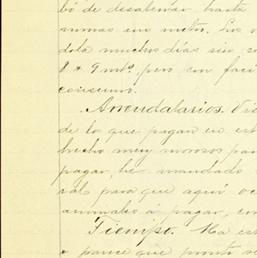 bó de desaterrar hasta
mimas un metro. Los
dola muchos dias sin
8 á 9 mts. pero con faci
consumo.
Arrendatarios.
de lo que pagan en est
hecho muy morosos par
pagar, he mandado
rals para que aquí
animales á pagar, con
Tiempo. Ha est
parece que pronto